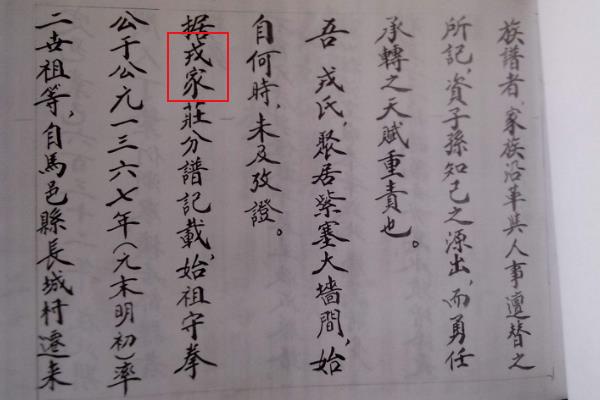 族譜者，家族沿革與人事邅替之
所記，資子孫知己之源出，而勇任
承轉之天賦重責也。
吾戎氏，聚居紫塞大墻間，始
自何時，未及攷證。
据戎家莊分譜記載，始祖守拳
公于公元一三六七年（元末明初）率
二世祖等，自馬邑縣長城村遷来